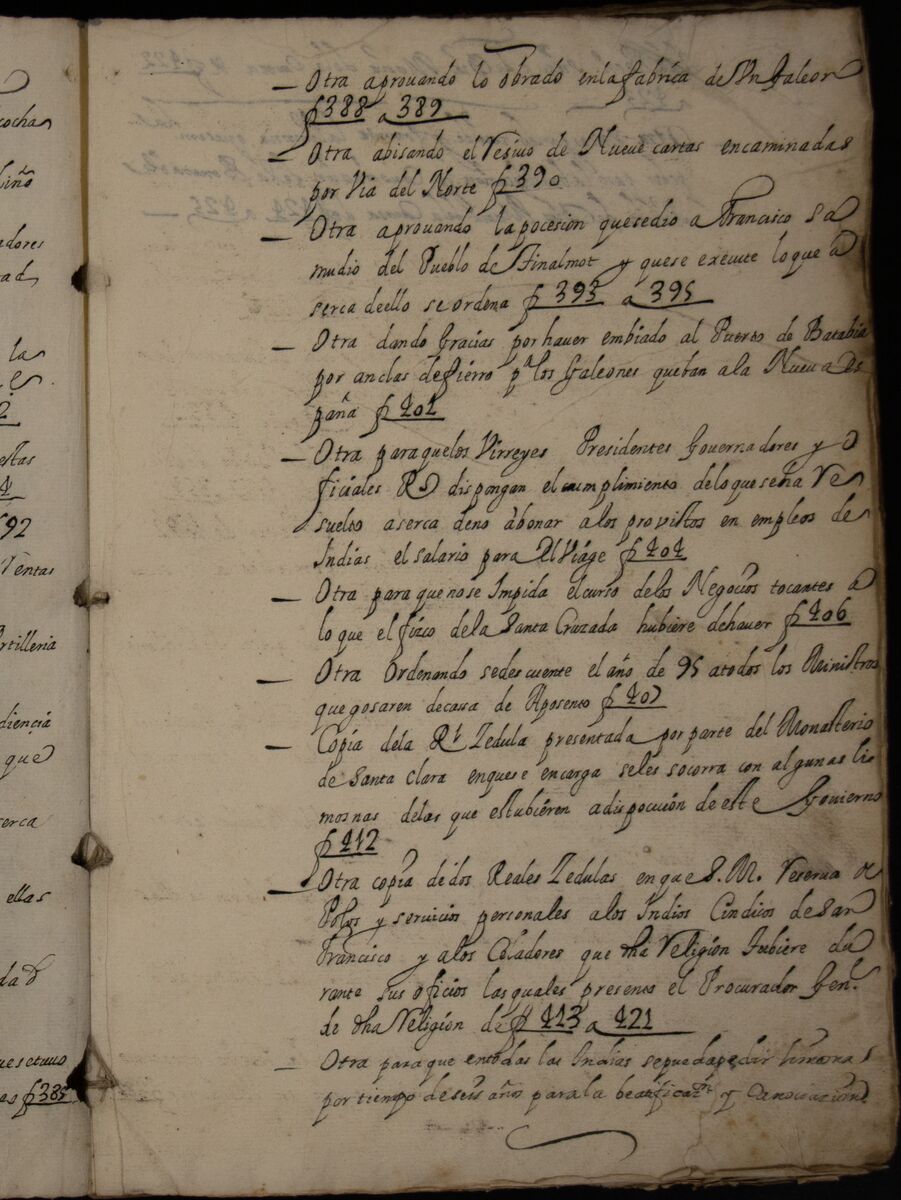 cocha
iño
adores
ad
la
2
estas
4
592
Ventas
Artilleria
diençia
que
serca
ellas
da d
ues etuuo
as f 385
— Otra aprouando lo obrado enla fabrica de Vn Galeon
f 388 a 389
— Otra abisando el Resiuo de Nueue cartas encaminadas
por Via del Norte f 390
— Otra aprouando la pocesion quesedio a Francisco Sa
mudio del Pueblo de Finalmot y quese execute lo que a
serca deello se ordena f 393 a 395
— Otra dando Gracias por hauer embiado al Puerto de Batabia
por anclas defierro pª los Galeones queban ala Nueua Es
paña f 401
— Otra paraquelos Virreyes Presidentes Gouernadores y O
ficiales Rs dispongan el cumplimiento deloqueseha Re
suelto aserca deno abonar alos provistos en empleos de
Indias el salario para el Viage f 404
— Otra para que nose Impida elcurso delos Negocios tocantes a
lo que el fisco dela Santa Cruzada hubiere dehauer f 406
— Otra Ordenando sedescuente el año de 95 atodos los Ministros
quegosaren decasa de Aposento f 407
— Copia dela Rl Zedula presentada por parte del Monasterio
de Santa clara enquese encarga seles socorra con algunas li
mosnas delas que estubieren adispocicion de este Gouierno
f 412
— Otra copia dedos Reales Zedulas enque S. M. Reserua de
Polos y seruicios personales alos Indios Cindicos de San
Francisco y alos Coladores que dha Religion tubiere du
rante sus oficios las quales presento el Procurador Genl
de dha Religion de f 413 a 421
— Otra paraque entodas las Indias sepuedapedir limosnas
por tiempo de seis años parala beatificazn y Canonizacion